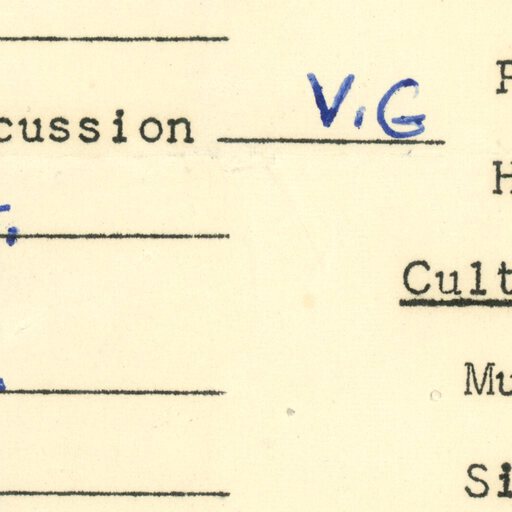 cussion V.G
P
H
Cult
Mu
Si